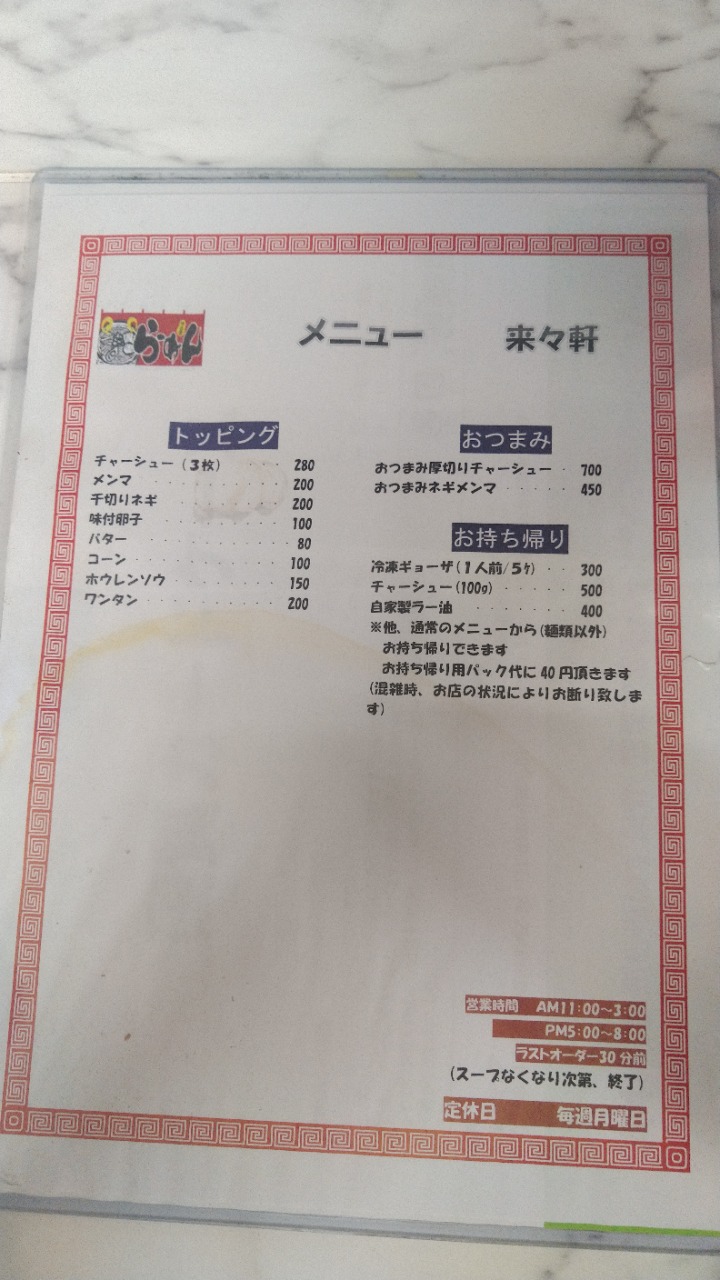 らーめん
メニュー 来々軒
トッピング
チャーシュー(3枚) 280
メンマ 200
千切りネギ 200
味付卵子 100
バター 80
コーン 100
ホウレンソウ 150
ワンタン 200
おつまみ
おつまみ厚切りチャーシュー 700
おつまみネギメンマ 450
お持ち帰り
冷凍ギョーザ(1人前/5ケ) 300
チャーシュー(100g) 500
自家製ラー油 400
※他、通常のメニューから(麺類以外)
お持ち帰りできます
お持ち帰り用パック代に40円頂きます
(混雑時、お店の状況によりお断り致しま
す)
営業時間 AM11:00〜3:00
PM5:00〜8:00
ラストオーダー30分前
(スープなくなり次第、終了)
定休日 毎週月曜日